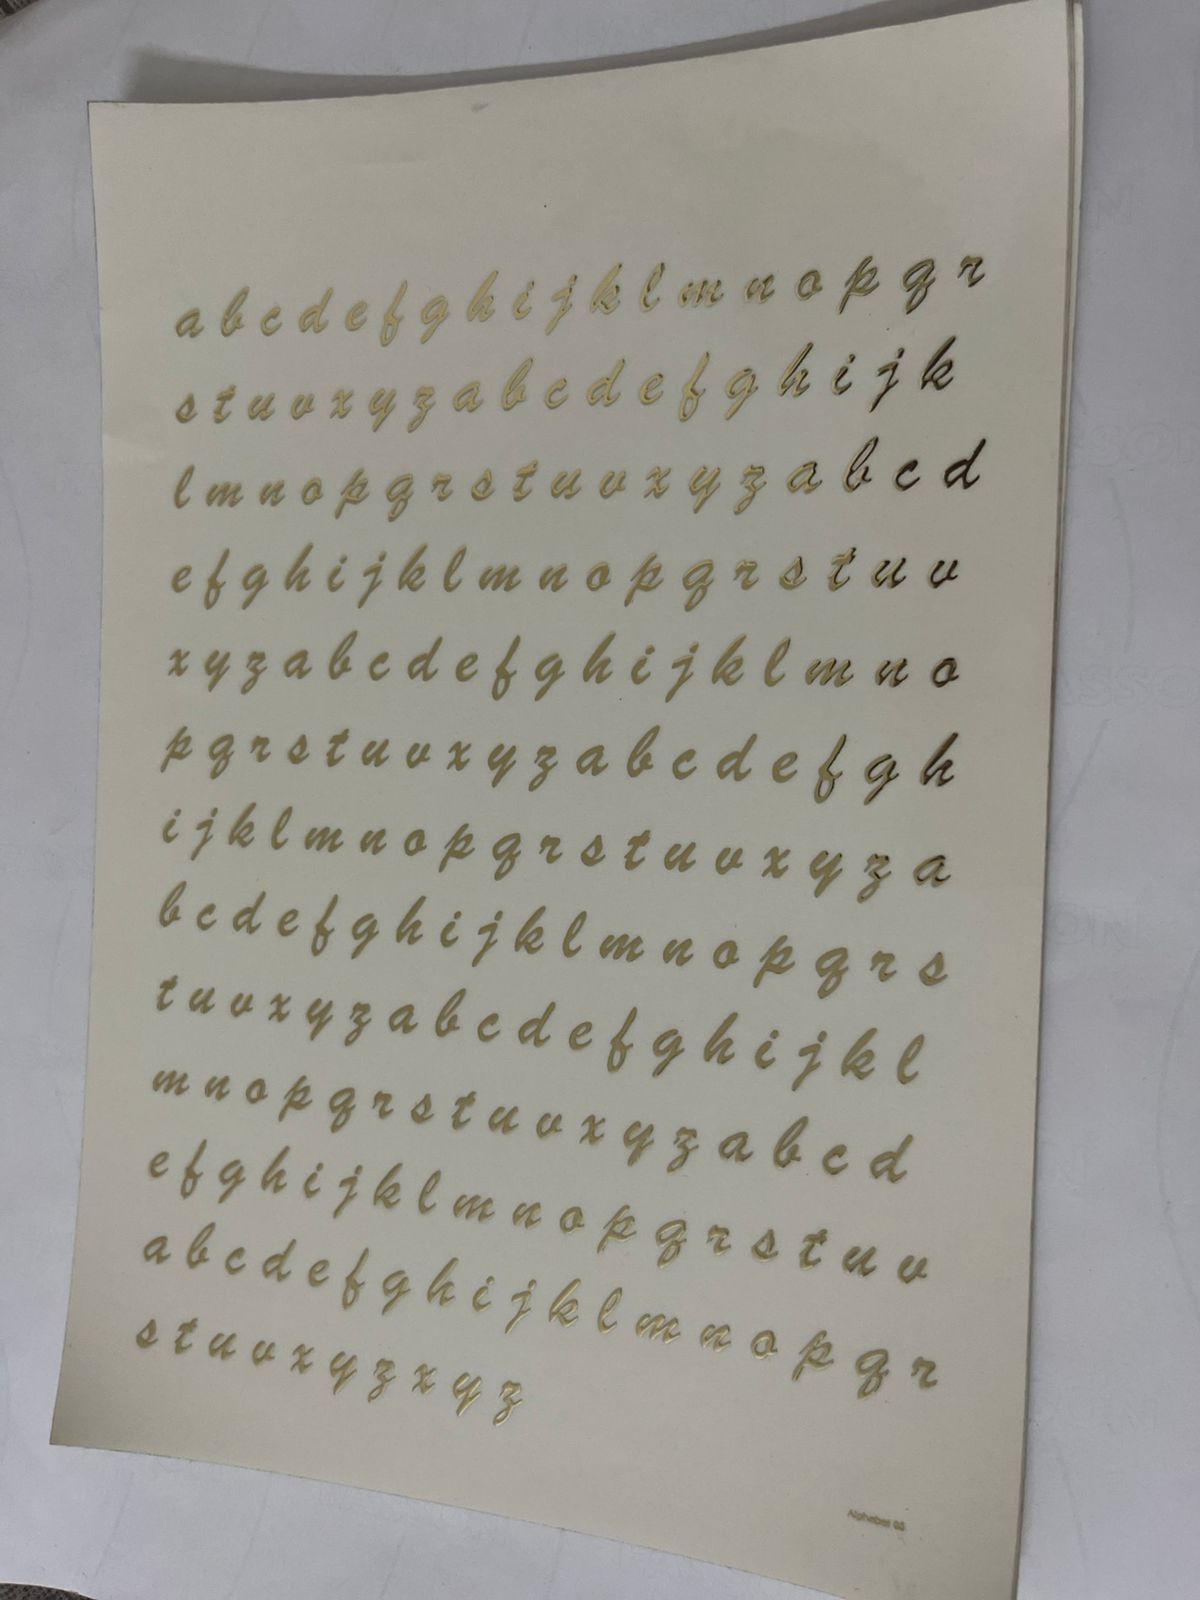 a b c d e f g h i j k l m n o p q r
s t u v x y z a b c d e f g h i j k
l m n o p q r s t u v x y z a b c d
e f g h i j k l m n o p q r s t u v
x y z a b c d e f g h i j k l m n o
p q r s t u v x y z a b c d e f g h
i j k l m n o p q r s t u v x y z a
b c d e f g h i j k l m n o p q r s
t u v x y z a b c d e f g h i j k l
m n o p q r s t u v x y z a b c d
e f g h i j k l m n o p q r s t u v
a b c d e f g h i j k l m n o p q r
s t u v x y z x y z
Alphabet